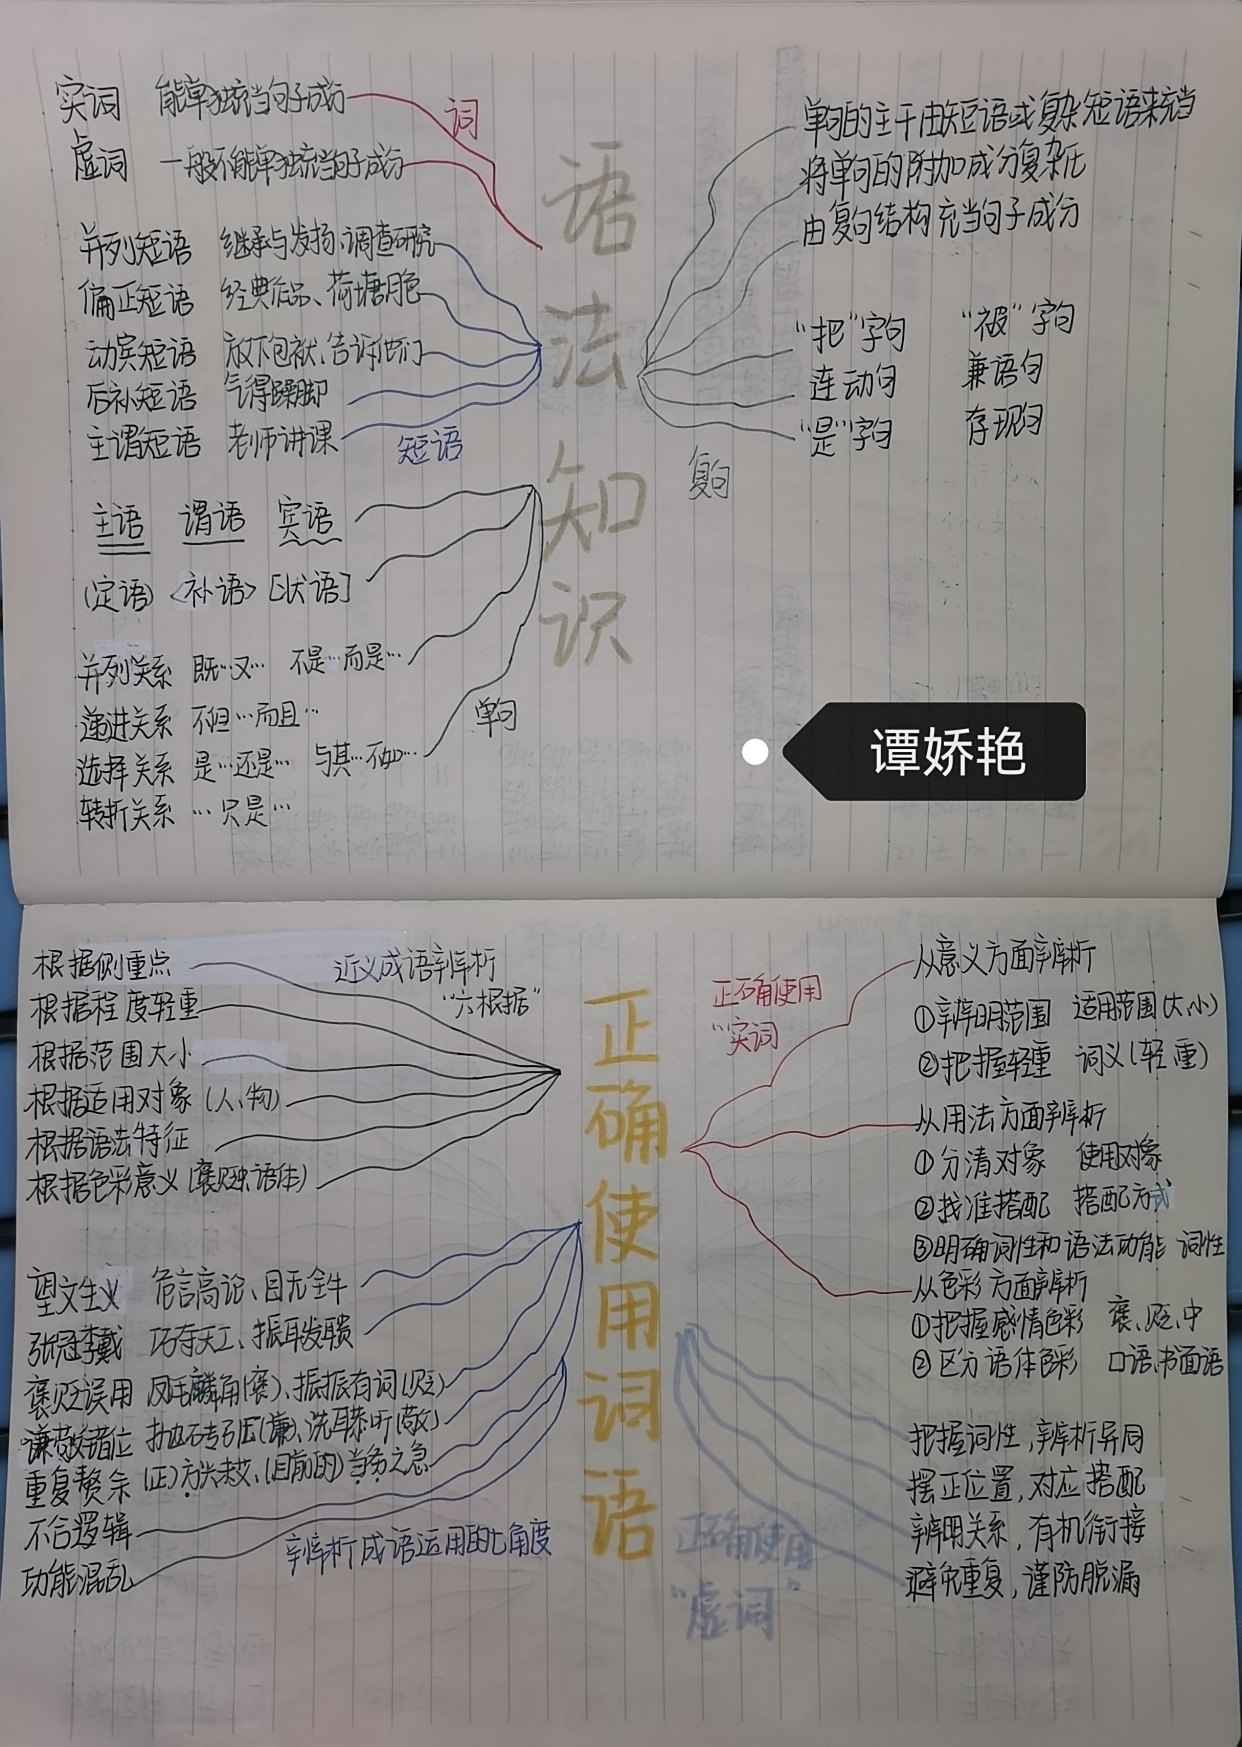 语法知识
词
实词 能单独充当句子成分
虚词 一般不能单独充当句子成分
并列短语 继承与发扬、调查研究
偏正短语 经典作品、荷塘月色
动宾短语 放下包袱、告诉他们
后补短语 气得跺脚
主谓短语 老师讲课
短语
主语 谓语 宾语
(定语) <补语> [状语]
并列关系 既…又… 不是…而是…
递进关系 不但…而且…
选择关系 是…还是… 与其…不如…
转折关系 …只是…
单句
单句的主干由短语或复杂短语来充当
将单句的附加成分复杂化
由复句结构充当句子成分
“把”字句 “被”字句
连动句 兼语句
“是”字句 存现句
复句
谭娇艳
正确使用词语
近义成语辨析
“六根据”
根据侧重点
根据程度轻重
根据范围大小
根据适用对象(人、物)
根据语法特征
根据色彩意义(褒贬、语体)
望文生义 危言高论、目无全牛
张冠李戴 巧夺天工、振聋发聩
褒贬误用 凤毛麟角(褒)、振振有词(贬)
谦敬错位 抛砖引玉(谦)、洗耳恭听(敬)
重复赘余 (正)方兴未艾、(目前的)当务之急
不合逻辑
功能混乱
辨析成语运用的七角度
正确使用
“实词
从意义方面辨析
①辨明范围 适用范围(大、小)
②把握轻重 词义(轻、重)
从用法方面辨析
①分清对象 使用对象
②找准搭配 搭配方式
③明确词性和语法功能 词性
从色彩方面辨析
①把握感情色彩 褒、贬、中
②区分语体色彩 口语、书面语
把握词性,辨析异同
摆正位置,对应搭配
辨明关系,有机衔接
避免重复,谨防脱漏
正确使用
“虚词”